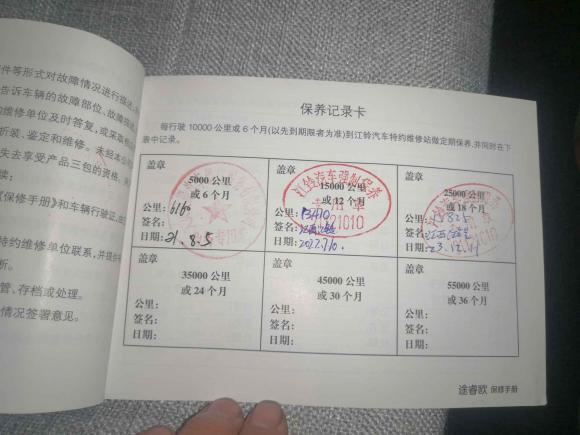 件等形式对故障情况进行描述,
告诉车辆的故障部位、故障现
维修单位及时答复,或采取
折装、鉴定和维修。未经本公
失去享受产品三包的资格。
读:
《保修手册》和车辆行驶证,
特约维修单位联系,并提供
断。
管、存档或处理。
情况签署意见。
保养记录卡
每行驶 10000 公里或 6 个月(以先到期限者为准)到江铃汽车特约维修站做定期保养,并同时在下
表中记录。
盖章
5000 公里
或 6 个月
公里:6160
签名:
日期:21.8.5
盖章
15000 公里
或 12 个月
江铃汽车强制保养
专用章
公里:13410
签名:
日期:2022.7.10.
盖章
25000 公里
或 18 个月
公里:
签名:
日期:23.12.11
盖章
35000 公里
或 24 个月
公里:
签名:
日期:
盖章
45000 公里
或 30 个月
公里:
签名:
日期:
盖章
55000 公里
或 36 个月
公里:
签名:
日期:
途睿欧 保修手册